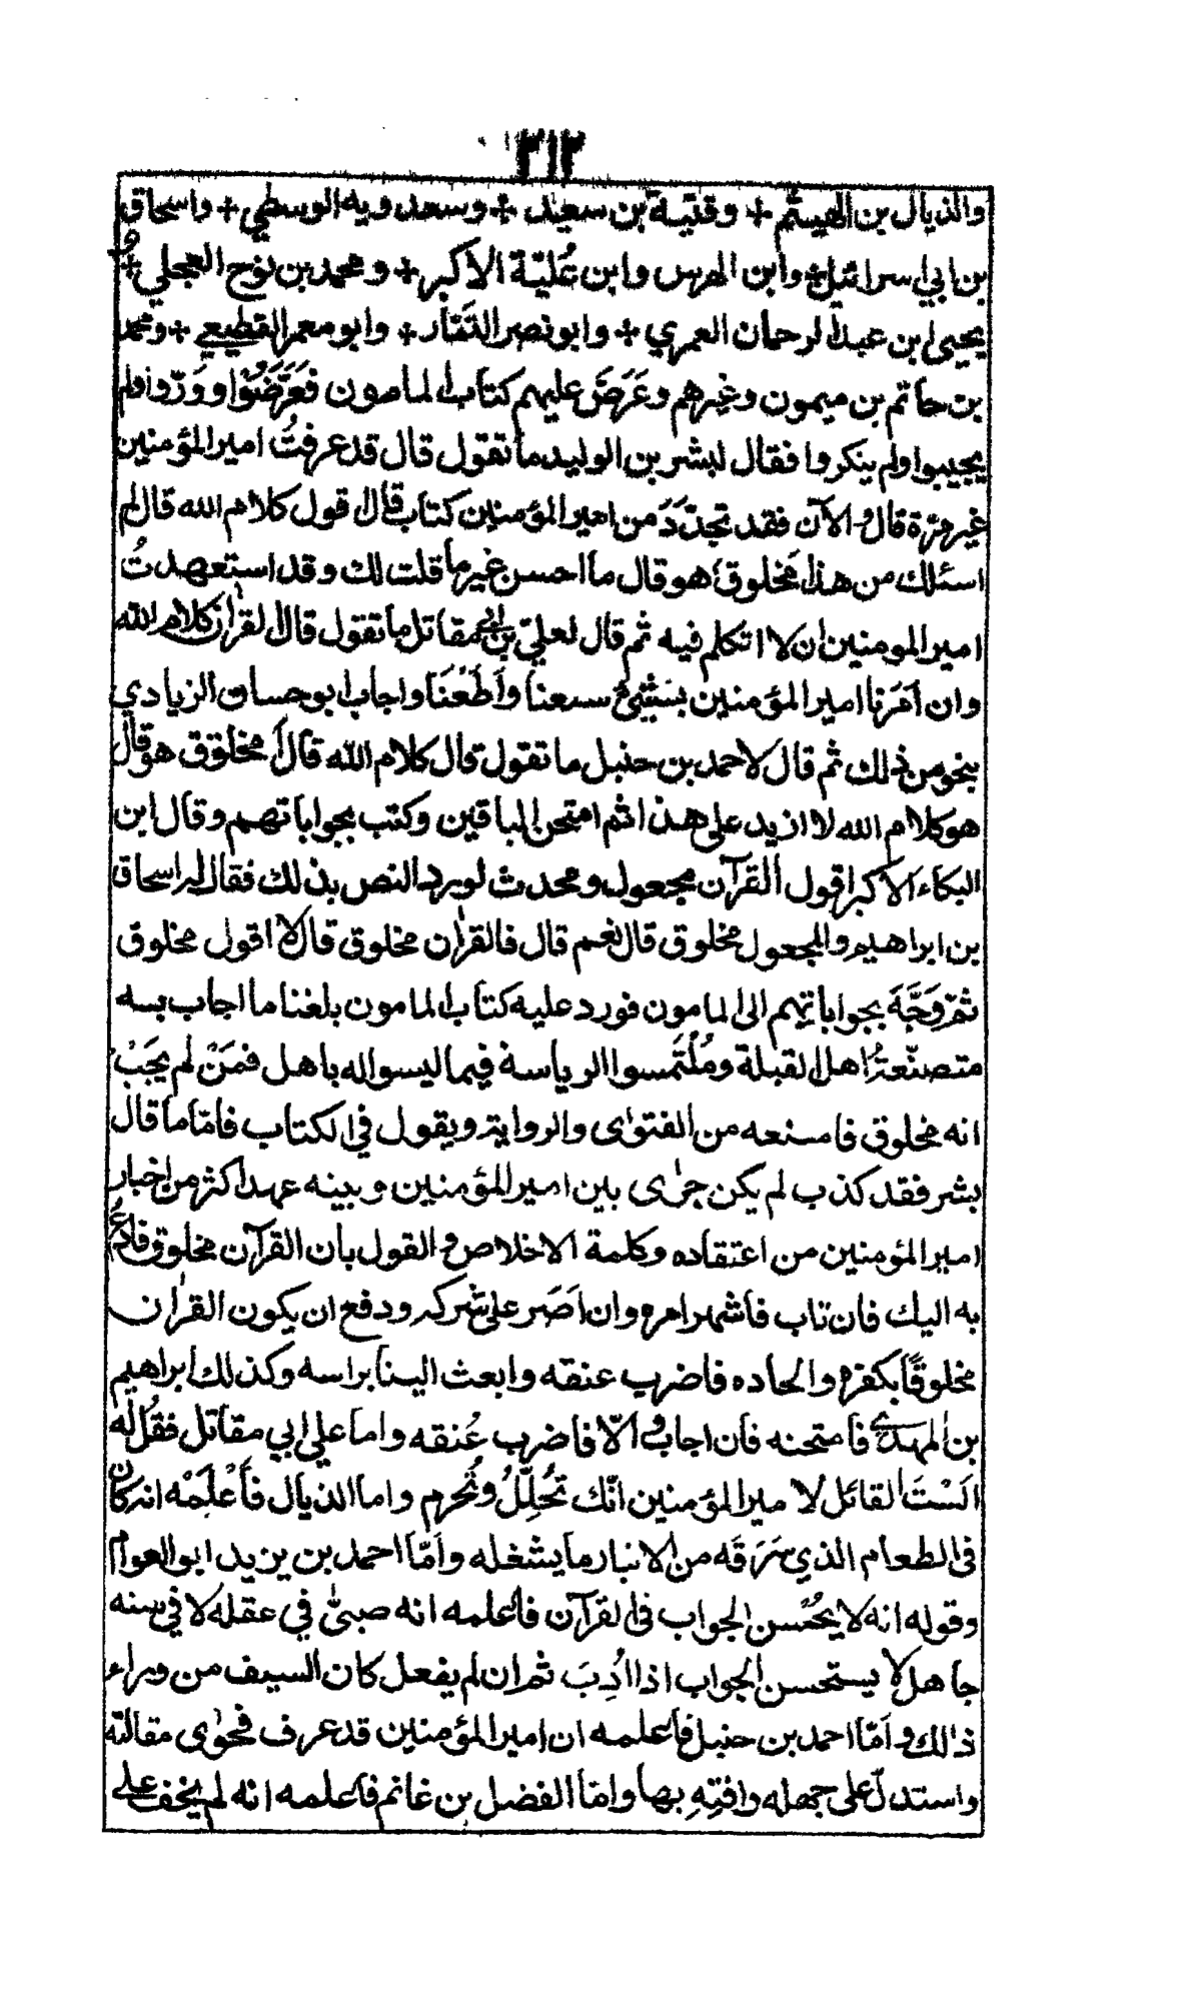 ٣١٢
والذيال بن الهيثم + وقتيبة بن سعيد + وسعدويه الوسطي + واسحاق
بن ابي اسرائيل + وابن الهرس وابن عُليّة الاكبر + ومحمد بن نوح العجلي + و
يحيى ابن عبد الرحمان العمري + وابو نصر التمّار + وابو معمر القطيعي + ومحمد
بن حاتم بن ميمون وغيرهم وعَرَضَ عليهم كتاب المامون فعَرَّضُوْا وورّوا ولم
يجيبوا ولم ينكروا فقال لبشر بن الوليد ما تقول قال قد عرفتُ امير المؤمنين
غير مرّة قال والآن فقد تجدّدَ من امير المؤمنين كتاب قال اقول كلام الله قال لم
اسئلك من هذا مخلوق هو قال ما احسن غير ما قلت لك وقد استعهدتُ
امير المومنين ان لا اتكلم فيه ثم قال لعليّ بن ابي مقاتل ما تقول قال القرآن كلام الله
وان اَمَرَنا امير المؤمنين بشيئ سمعنا واَطَعْنَا واجاب ابو حسان الزيادي
بنحو من ذلك ثم قال لاحمد بن حنبل ما تقول قال كلام الله قال اَ مخلوق هو قال
هو كلام الله لا ازيد على هذا ثم امتحن الباقين وكتب بجواباتهم وقال ابن
البكاء الاكبر اقول القرآن مجعول ومحدث لورود النص بذلك فقال له اسحاق
بن ابراهيم والمجعول مخلوق قال نعم قال فالقرآن مخلوق قال لا اقول مخلوق
ثم وَجَّهَ بجواباتهم الى المامون فورد عليه كتاب المامون بلغنا ما اجاب به
متصنّعةُ اهل القبلة ومُلْتَمسوا الرياسة فيما ليسوا له باهل فمَنْ لم يجَبْ
انه مخلوق فامنعه من الفتوى والرواية ويقول في الكتاب فامّا ما قال
بشر فقد كذب لم يكن جرى بين امير المؤمنين وبينه عهد اكثر من اخبار
امير المؤمنين من اعتقاده وكلمة الاخلاص والقول بان القرآن مخلوق فادعُ
به اليك فان تاب فاشهر امره وان اَصَر على شركه ودفع ان يكون القرآن
مخلوقًا بكفره والحاده فاضرب عنقه وابعث الينا براسه وكذلك ابراهيم
بن المهدي فامتحنه فان اجاب والّا فاضرب عُنقه واما علي ابي مقاتل فقُل له
اَلَسْتَ القائل لامير المؤمنين انّك تُحَلِّلُ وتُحرم واما الذيال فأَعْلِمْه انه كان
في الطعام الذي سَرَقَه من الانبار ما يشغله وأمّا احمد بن يزيد ابو العوام
وقوله انه لا يحُسن الجواب في القرآن فأعلمه انه صبيٌّ في عقله لا في سنه
جاهل لا يستحسن الجواب اذا اُدِبَ ثم ان لم يفعل كان السيف من وراء
ذالك واَمّا احمد بن حنبل فأعلمه ان امير المؤمنين قد عرف فحوى مقالته
واستدلّ على جهله وافتِهِ بها وامّا الفضل بن غانم فأعلمه انه لم يخف على